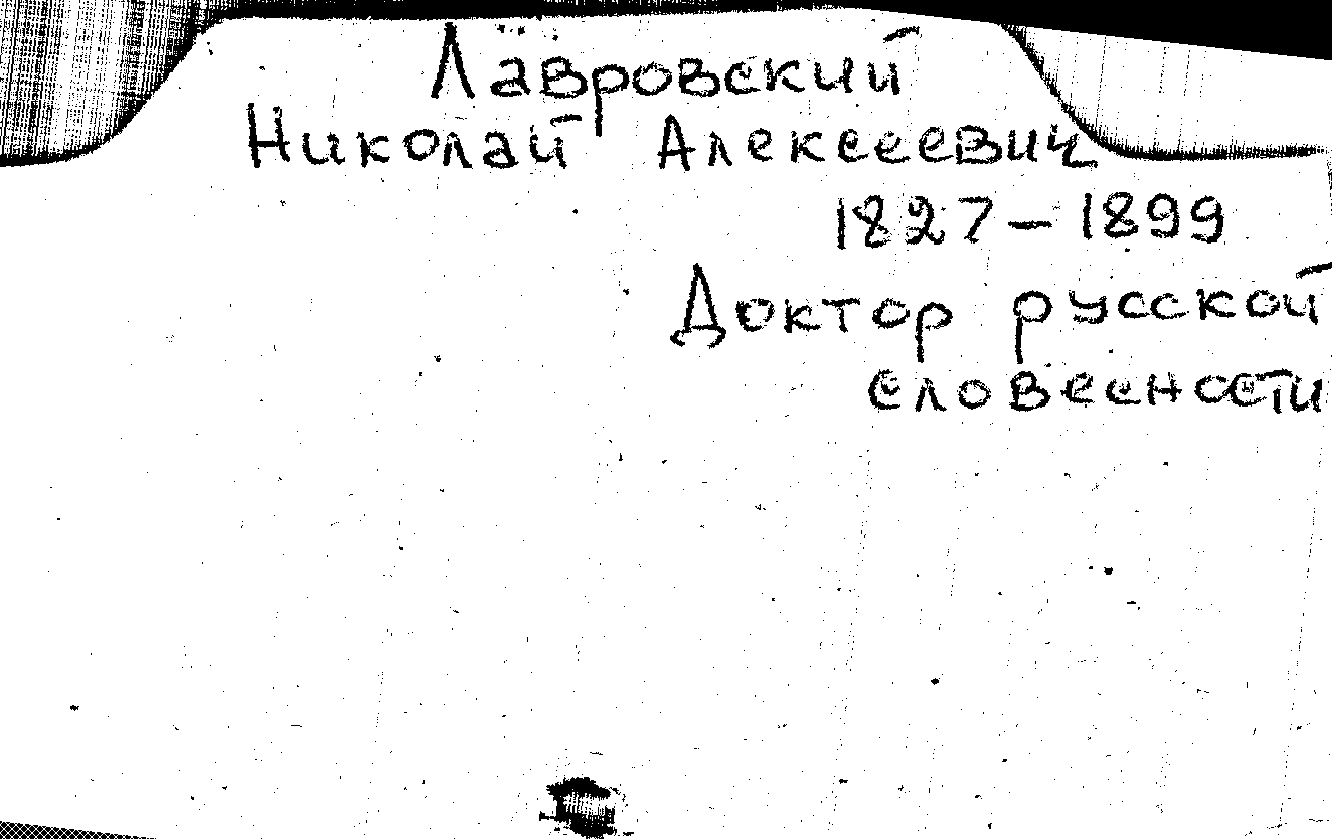 Лавровский
Николай Алексеевич
1827-1899
Доктор русской
словесности